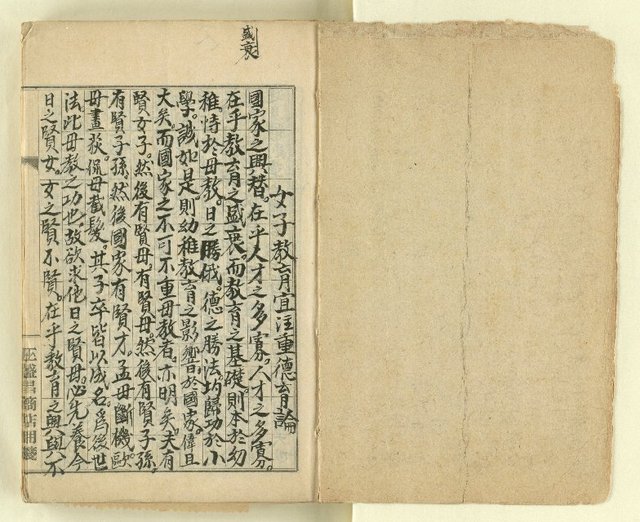 盛衰
女子教育宜注重德育論
國家之興替。在乎人才之多寡。人才之多寡。
在乎教育之盛衰。而教育之基礎。則本於幼
稚。恃於母教。日之勝俄。德之勝法。均歸功於小
學。誠如是。則幼稚教育之影響於國家。偉且
大矣。而國家之不可不重母教者。亦明矣。夫有
賢女子。然後有賢母。有賢母。然後有賢子孫。
有賢子孫。然後國家有賢才。孟母斷機。歐
母畫荻。侃母截髮。其子卒皆以成名。爲後世
法。此母教之功也。故欲求他日之賢母。必先養今
日之賢女。女之賢不賢。在乎教育之興與不